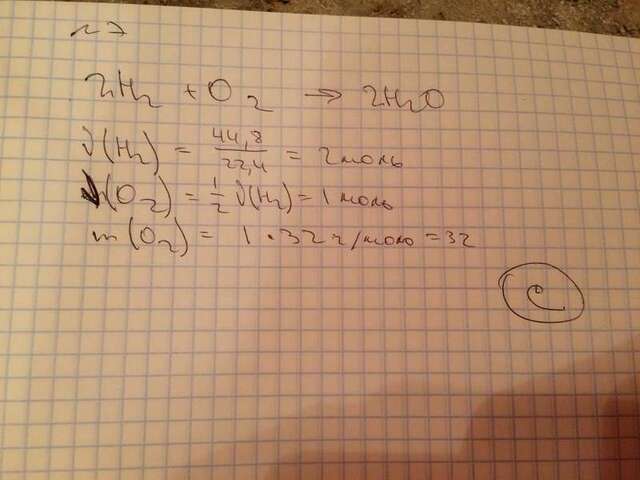 №7
2H₂ + O₂ → 2H₂O
ν(H₂) = 44,8/22,4 = 2 моль
ν(O₂) = 1/2 ν(H₂) = 1 моль
m(O₂) = 1 · 32 г/моль = 32